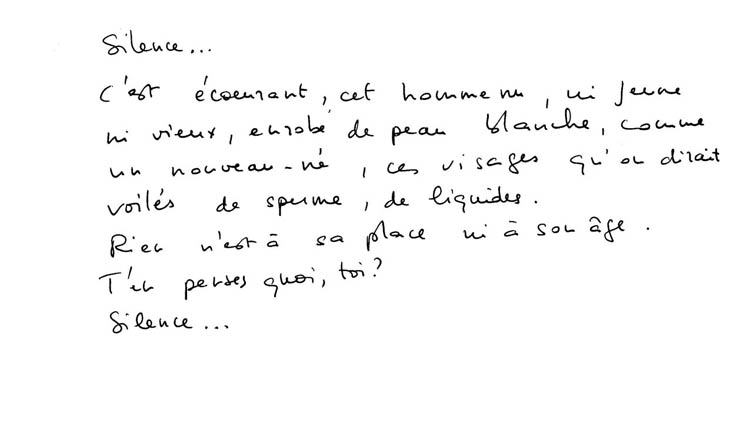 Silence...
C'est écoeurant, cet homme nu, ni jeune
ni vieux, enrobé de peau blanche, comme
un nouveau-né, ces visages qu'on dirait
voilés de sperme, de liquides.
Rien n'est à sa place ni à son âge.
T'en penses quoi, toi?
Silence...